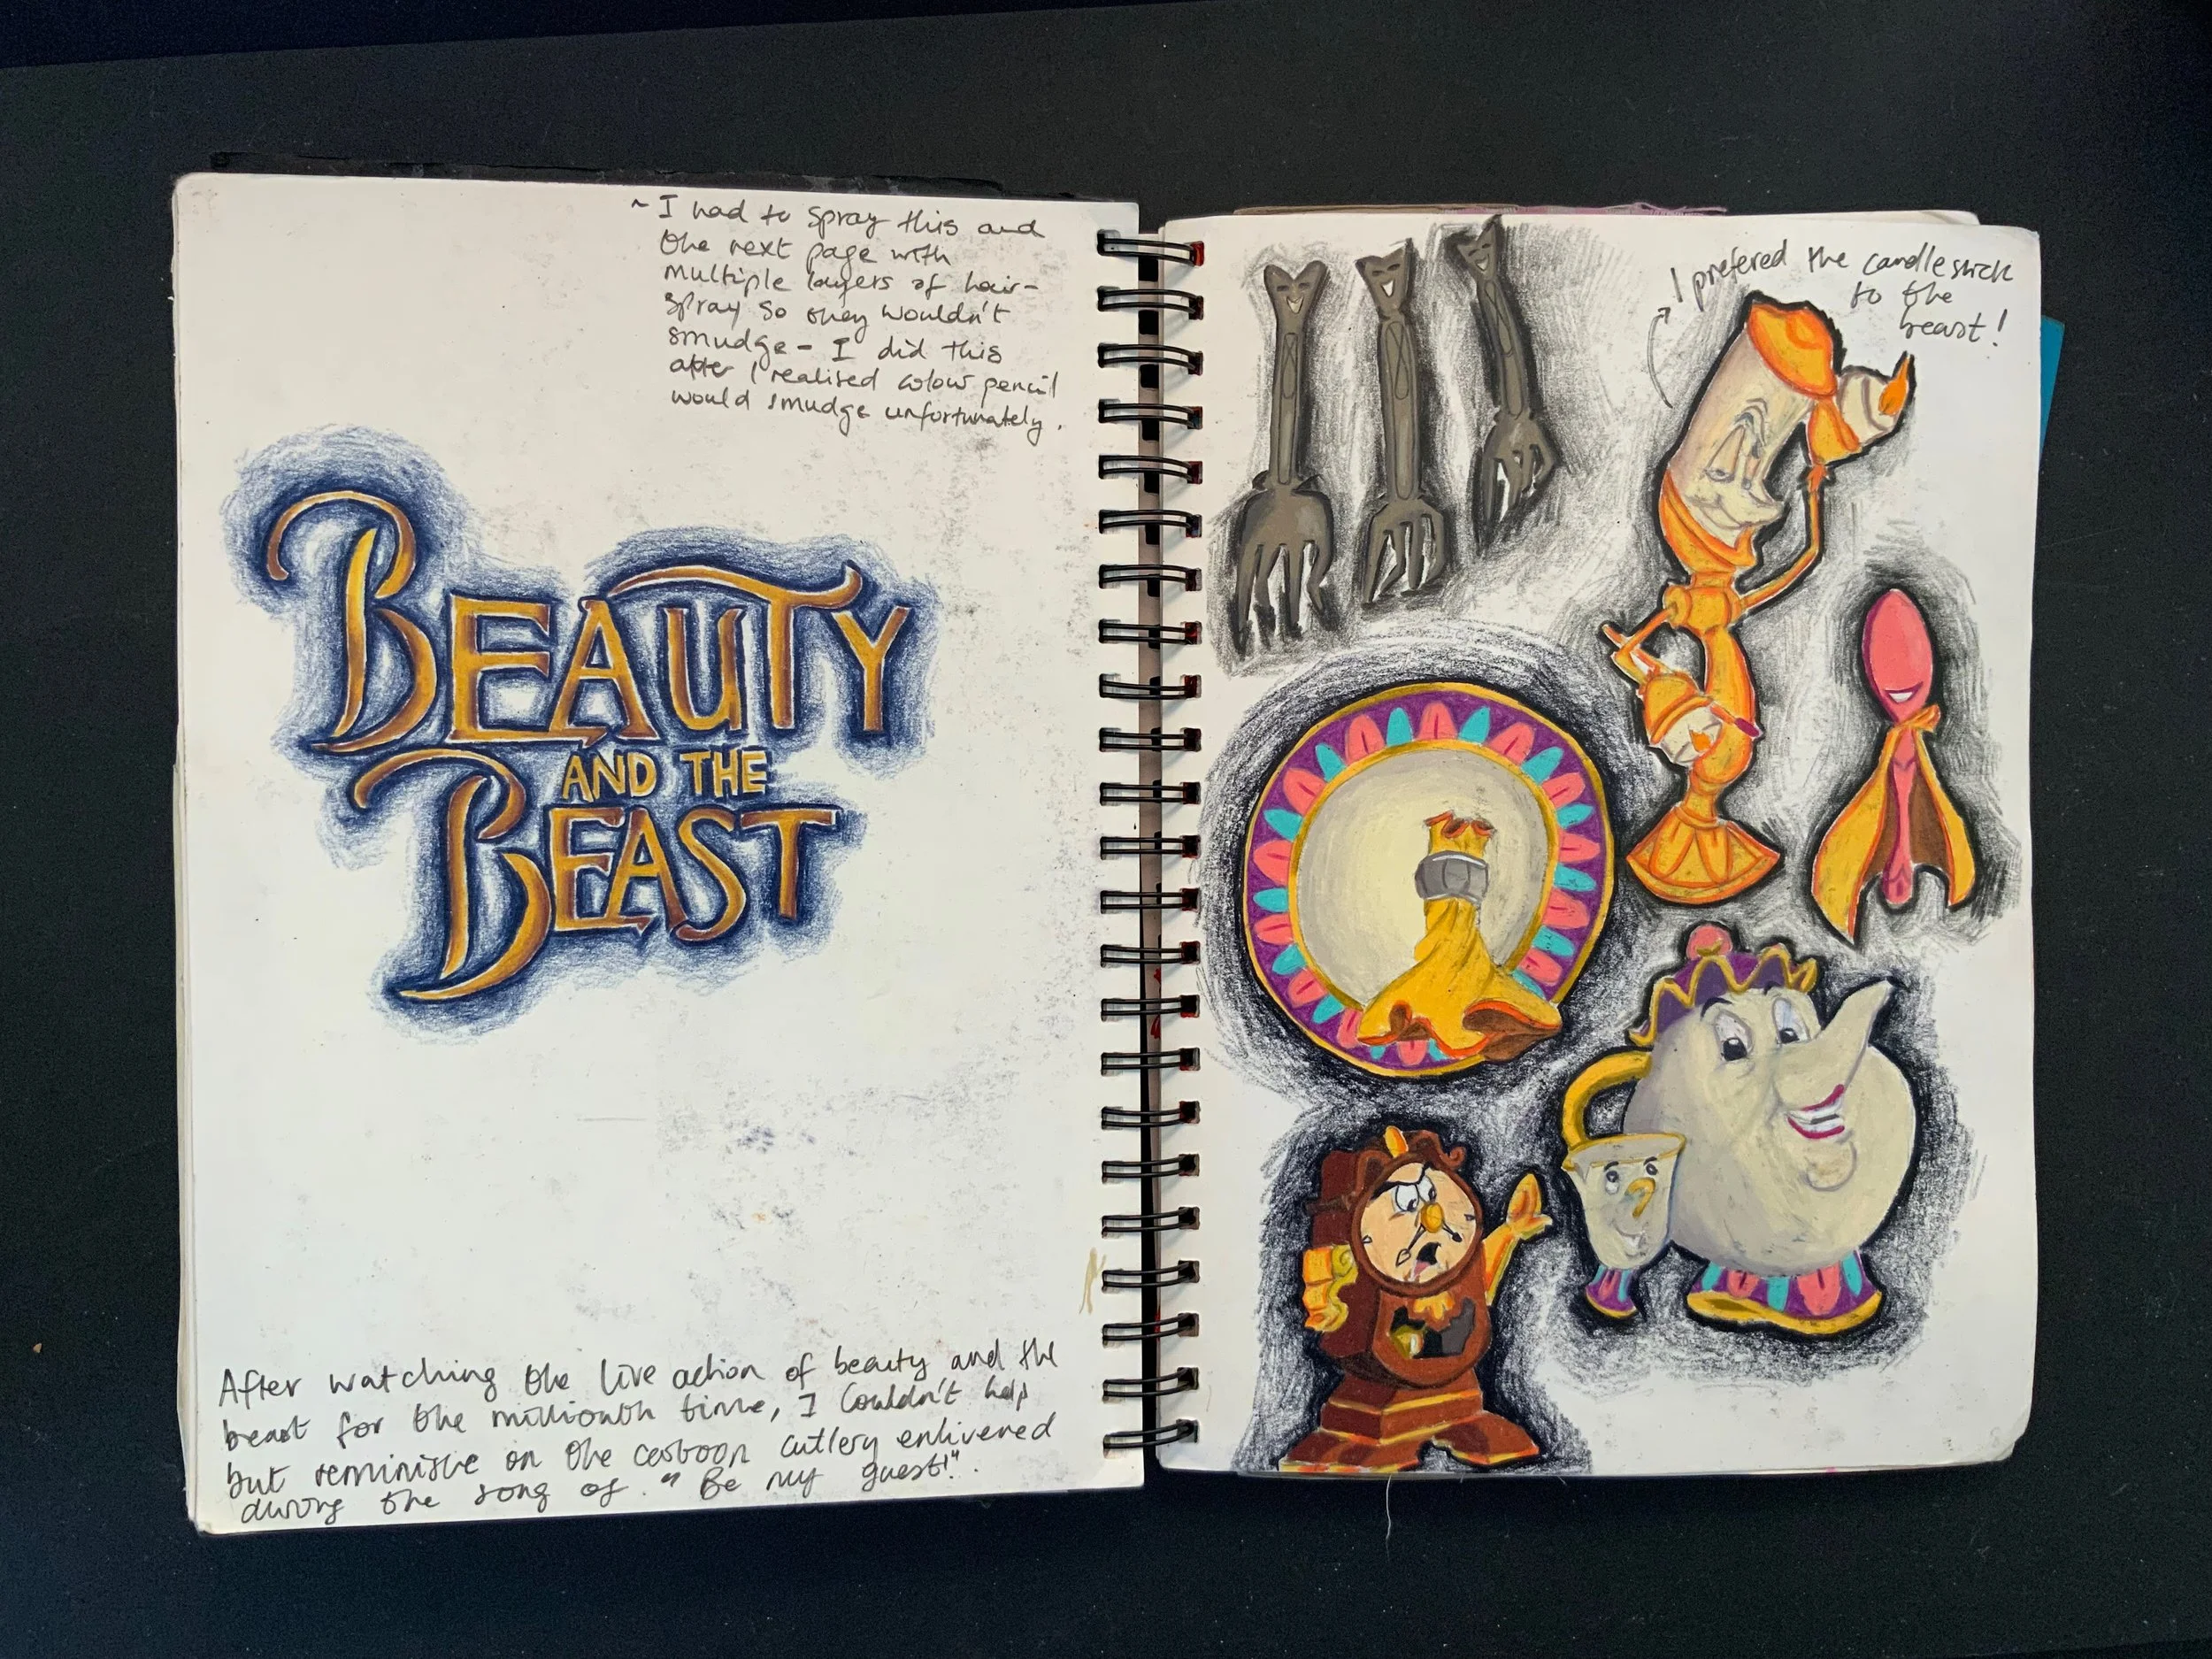 ~ I had to spray this and
the next page with
multiple layers of hair-
spray so they wouldn't
smudge - I did this
after I realised colour pencil
would smudge unfortunately.
BEAUTY
AND THE
BEAST
After watching the live action of beauty and the
beast for the millionth time, I couldn't help
but reminische on the cartoon cutlery enlivered
during the song of. "Be my guest!".
I prefered the candlestick
to the
beast!